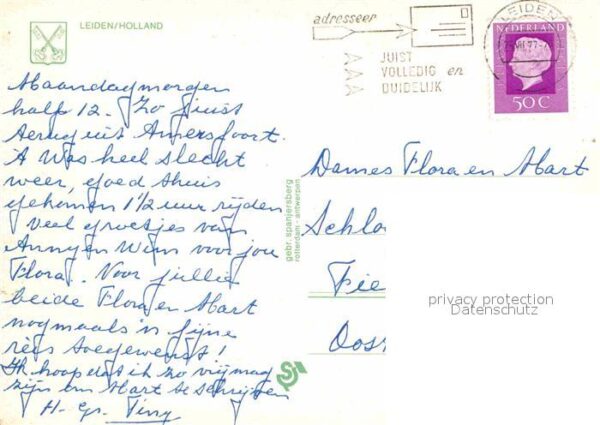 LEIDEN/HOLLAND
Maandagmorgen
half 12. Zo juist
terug uit Amersfoort.
Was heel slecht
weer, goed thuis
gekomen 1½ uur rijden
Veel groetjes van
Anny en Wim voor jou
Flora. Voor jullie
beide Flora en Mart
nogmaals 'n fijne
reis toegewenst!
Ik hoop dat ik zo vrij mag
zijn om Mart te schrijven
H. Gr. Tiny
gebr. spanjersberg
rotterdam - antwerpen
adresseer
JUIST
VOLLEDIG en
DUIDELIJK
LEIDEN
NEDERLAND
50 C
Dames Flora en Mart
Schlo
Fie
Ooss
privacy protection
Datenschutz